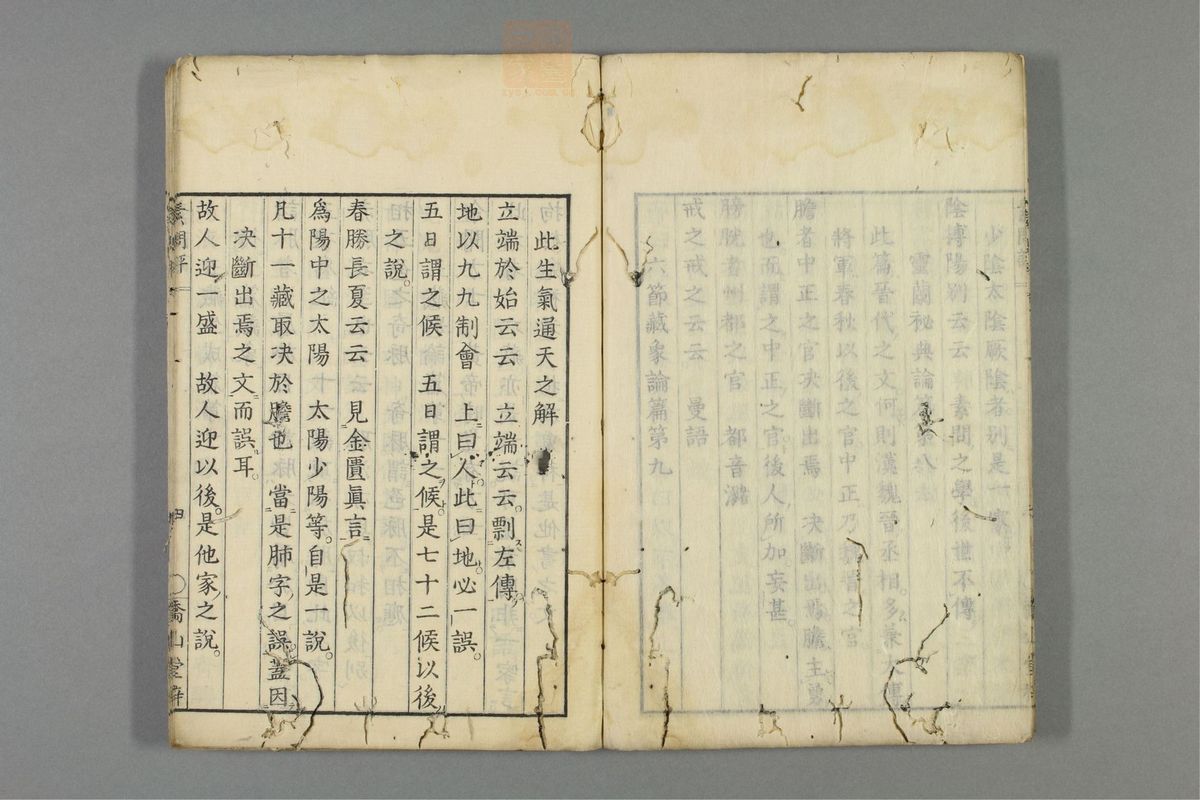 少陰太陰厥陰者別是一家
陰搏陽別云云 素問之學後世不傳
靈蘭秘典論篇第八
此篇晉代之文何則漢魏晉丞相多兼大
將軍春秋以後之官中正乃魏晉之官
膽者中正之官決斷出焉 決斷出焉膽主勇
也而謂之中正之官後人所加妄甚
膀胱者州都之官 都音瀦
戒之戒之云云 曼語
六節藏象論篇第九
此生氣通天之解
立端於始云云 立端云云。剽左傳。
地以九九制會 上曰人。此曰地。必一誤。
五日謂之候 五日謂之候。是七十二候以後
之說。
春勝長夏云云 見金匱眞言
爲陽中之太陽 太陽少陽等。自是一說。
凡十一藏取决於膽也 當是肺字之誤。蓋因
决斷出焉之文而誤耳。
故人迎一盛 故人迎以後。是他家之說。
素問評
四